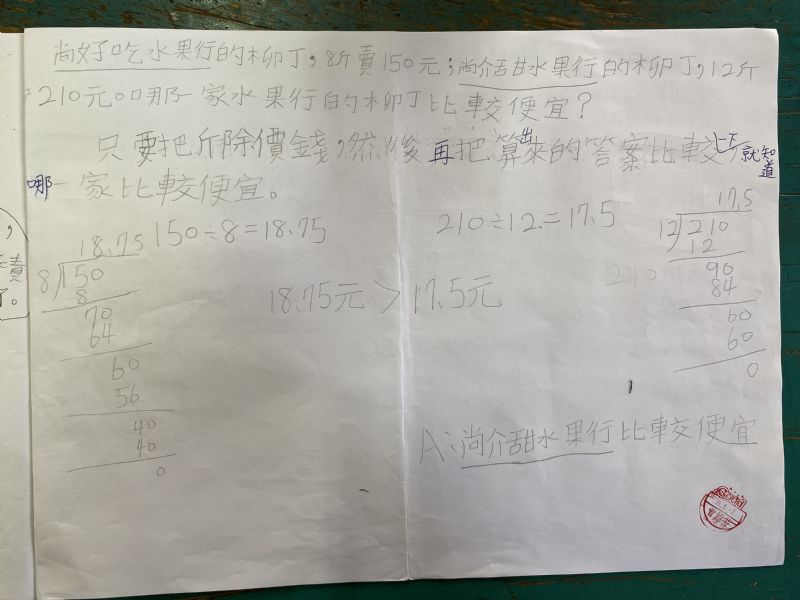 尚好吃水果行的柳丁，8斤賣150元；尚介甜水果行的柳丁，12斤
210元。哪一家水果行的柳丁比較便宜？
只要把斤除價錢，然後再把算出來的答案比較一下，就知道
哪一家比較便宜。
150÷8=18.75
18.75
8√150
8
70
64
60
56
40
40
0
18.75元＞17.5元
210÷12=17.5
17.5
12√210
12
90
84
60
60
0
210
A：尚介甜水果行比較便宜
賣
。